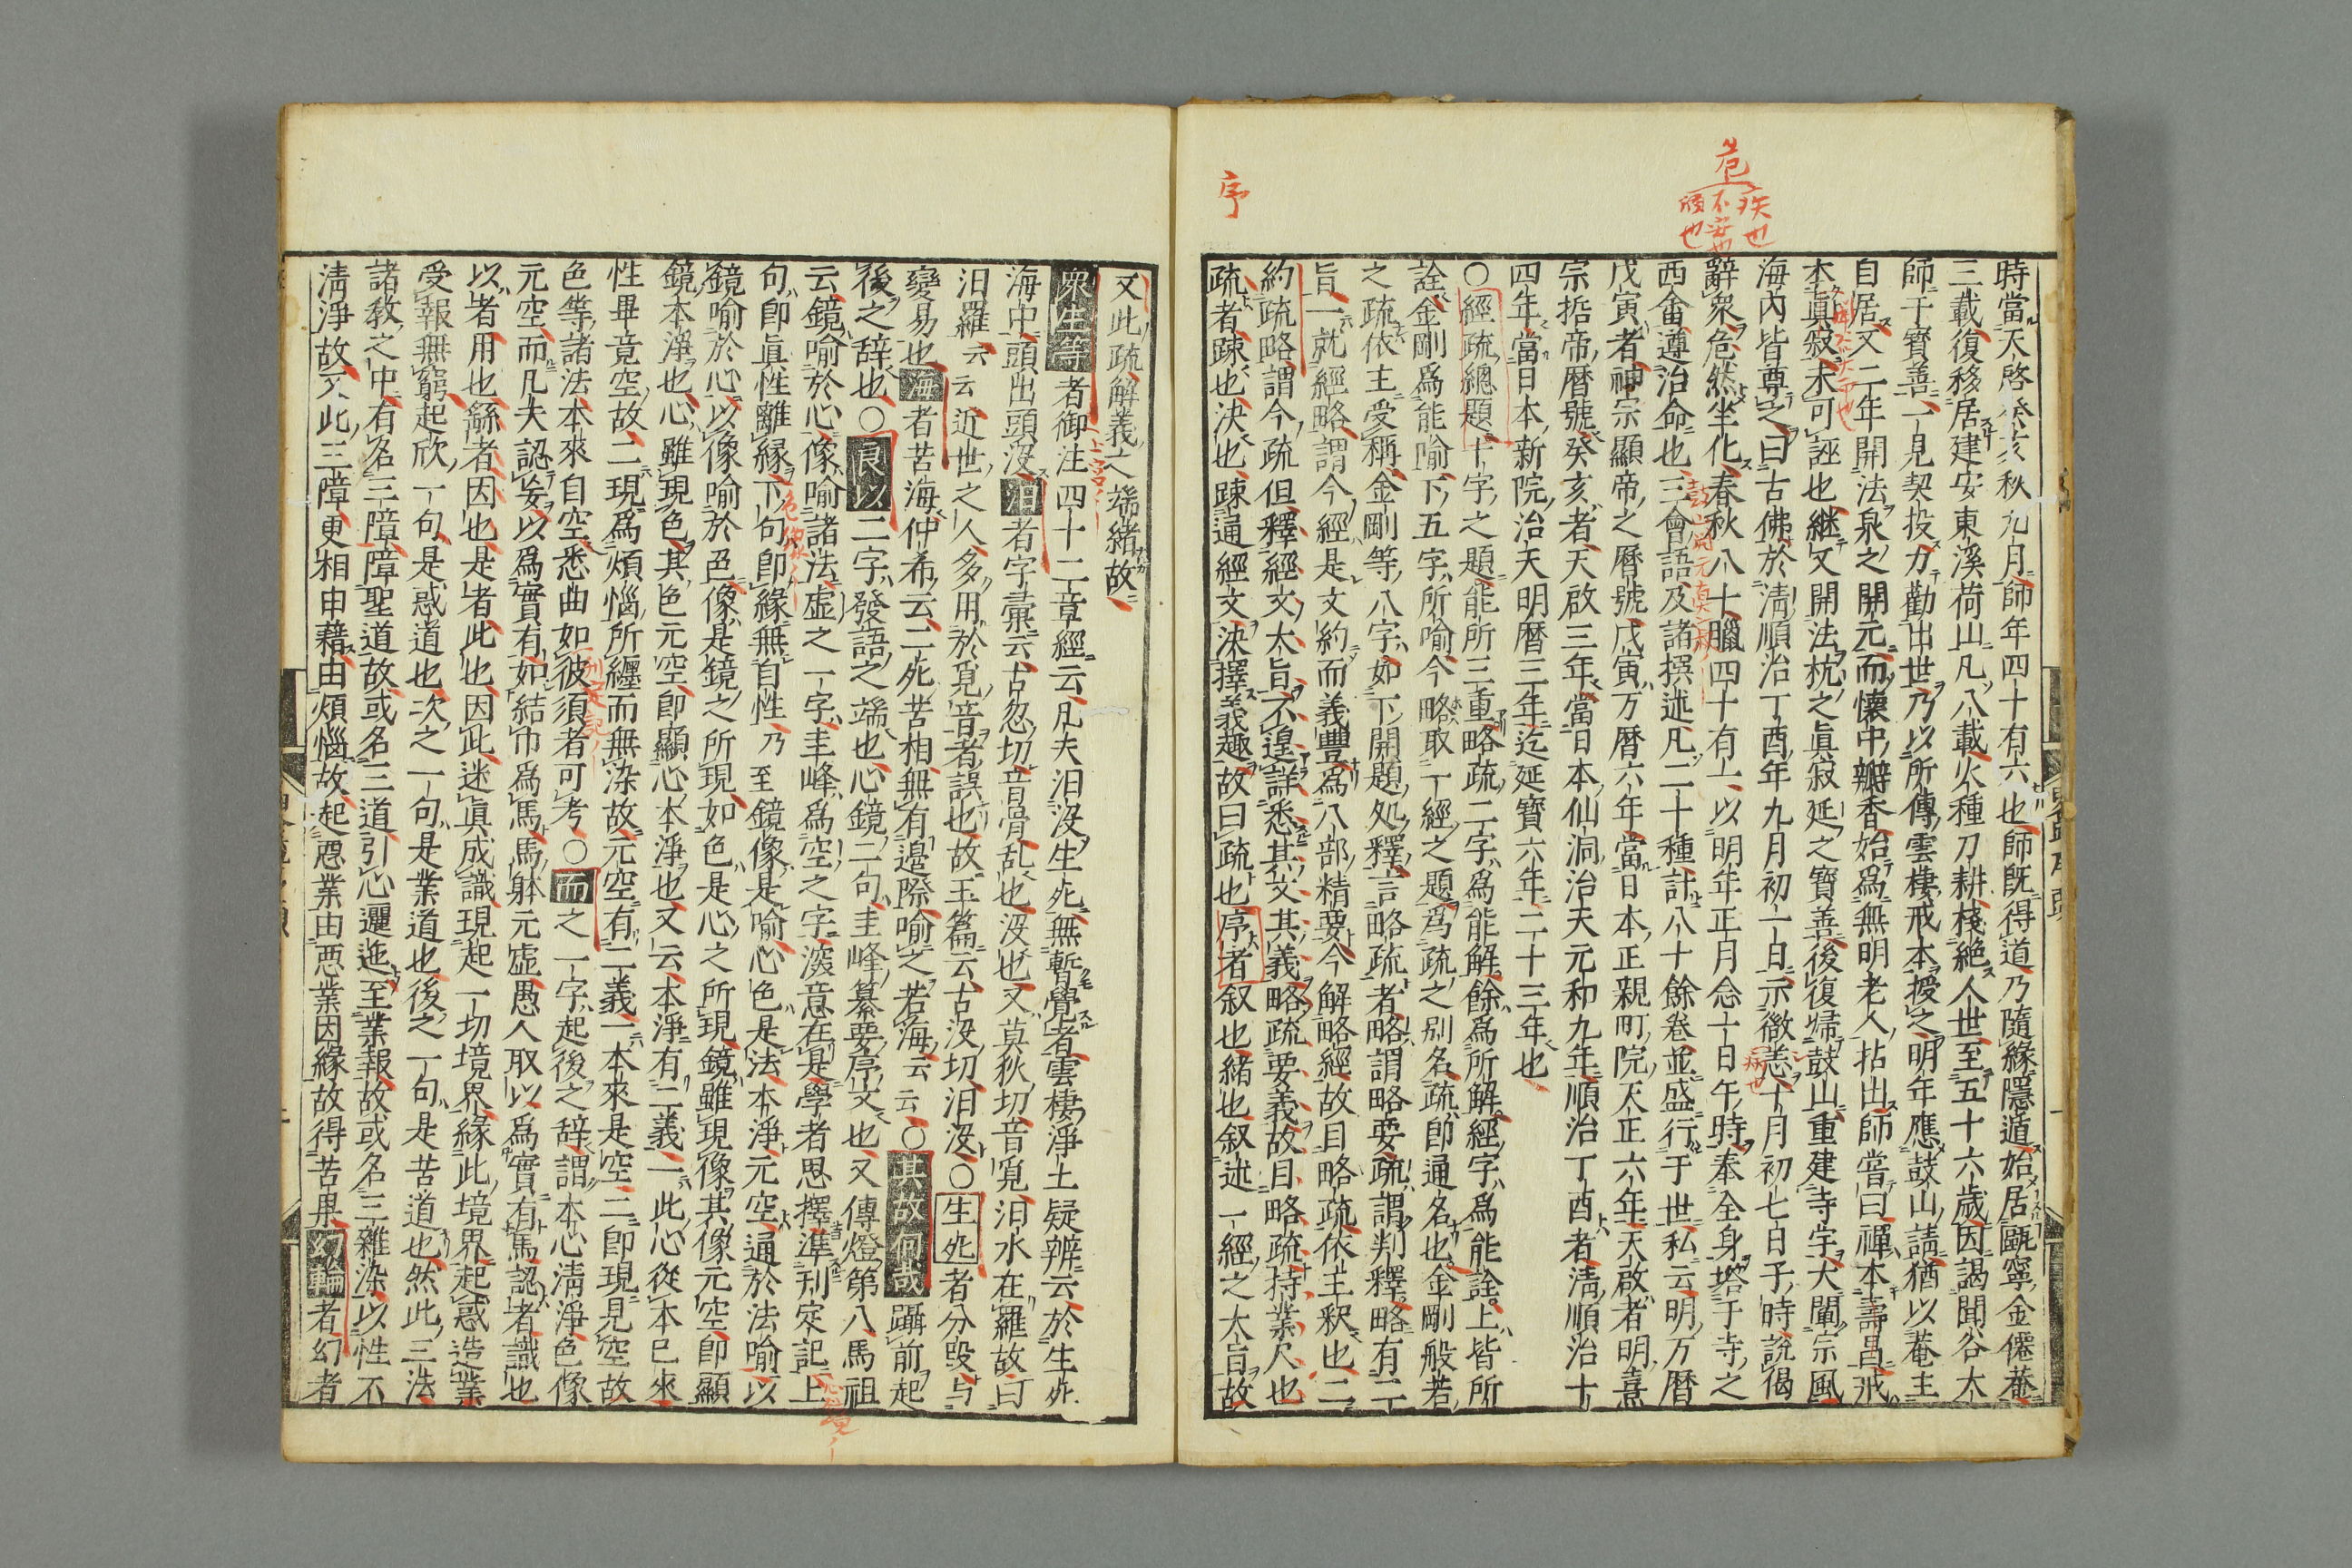 時當天啓癸亥秋九月師年四十有六也師既得道乃隨緣隱遁始居甌寧金僊菴
三載復移居建安東溪荷山凡八載火種刀耕棧絶人世至五十六歳因謁聞谷大
師于寶善一見契投力勸出世乃以所傳雲棲戒本授之明年應鼓山請猶以菴主
自居又二年開法泉之開元而懐中瓣香始爲無明老人拈出師嘗曰禪本壽昌戒
本眞寂未可誣也継又開法杭之眞寂延之寶善後復歸鼓山重建寺宇大闡宗風
海内皆尊之曰古佛於淸順治丁酉年九月初一日示微恙十月初七日子時説偈
辭衆危然坐化春秋八十臘四十有一以明年正月念十日午時奉全身塔于寺之
西畬遵治命也三會語及諸撰述凡二十種計八十餘卷並盛行于世私云明万暦
戊寅者神宗顯帝之曆號戊寅万暦六年當日本正親町院天正六年天啟者明熹
宗悊帝暦號癸亥者天啟三年當日本仙洞治天元和九年順治丁酉者淸順治十
四年當日本新院治天明暦三年迄延寶六年二十三年也
〇經疏總題十字之題能所三重略疏二字爲能解餘爲所解經字爲能詮上皆所
詮金剛爲能喻下五字所喻今略取一經之題爲疏之別名疏卽通名也金剛般若
之疏依主受稱金剛等八字如下開題處釋言略疏者略謂略要疏謂判釋略有二
旨一就經略謂今經是文約而義豐爲八部精要今解略經故目略疏依主釈也二
約疏略謂今疏但釋經文大旨不遑詳悉其文其義略疏要義故目略疏持業尺也
疏者踈也決也踈通經文決擇義趣故曰疏也序者叙也緒也叙述一經之大旨故
序
危
疾也
不安也
傾也
病也
又此疏解義之端緒故
衆生等者御注四十二章經云凡夫汨沒生死無暫覺者雲棲淨土疑辨云於生死
海中頭出頭沒汨者字彙云古忽切音骨乱也沒也又莫狄切音覓汨水在羅故曰
汨羅云云近世之人多用於覓音者誤也故玉篇云古沒切汨沒〇生死者分段与
變易也海者苦海仲希云二死苦相無有邊際喻之若海云云〇其故何哉躡前起
後之辞也〇良以二字發語之端也心鏡二句圭峰纂要序文也又傳燈第八馬祖
云鏡喻於心像喻諸法虚之一字圭峰爲空之字深意在是學者思擇準刊定記上
句卽眞性離縁下句卽緣無自性乃至鏡像是喻心色是法本淨元空通於法喻以
鏡喻於心以像喻於色像是鏡之所現如色是心之所現鏡雖現像其像元空卽顯
鏡本淨也心雖現色其色元空卽顯心本淨也又云本淨有二義一此心從本已來
性畢竟空故二現爲煩惱所纏而無染故元空有二義一本來是空二卽現見空故
色等諸法本來自空悉曲如彼須者可考〇而之一字起後之辞謂本心淸淨色像
元空而凡夫認妄以爲實有如結巾爲馬馬躰元虛愚人取以爲實有馬認者識也
以者用也繇者因也是者此也因此迷眞成識現起一切境界緣此境界起惑造業
受報無窮起欣一句是惑道也次之一句是業道也後之一句是苦道也然此三法
諸敎之中有名三障障聖道故或名三道引心邐迤至業報故或名三雜染以性不
淸淨故又此三障更相由藉由煩惱故起悪業由悪業因縁故得苦果幻輪者幻者